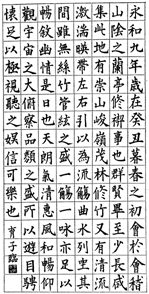 永和九年歲在癸丑暮春之初會於會稽
山陰之蘭亭修禊事也群賢畢至少長咸
集此地有崇山峻嶺茂林修竹又有清流
激湍映帶左右引以為流觴曲水列坐其
間雖無絲竹管弦之盛一觴一詠亦足以
暢敘幽情是日也天朗氣清惠風和暢仰
觀宇宙之大俯察品類之盛所以遊目騁
懷足以極視聽之娛信可樂也 子臨